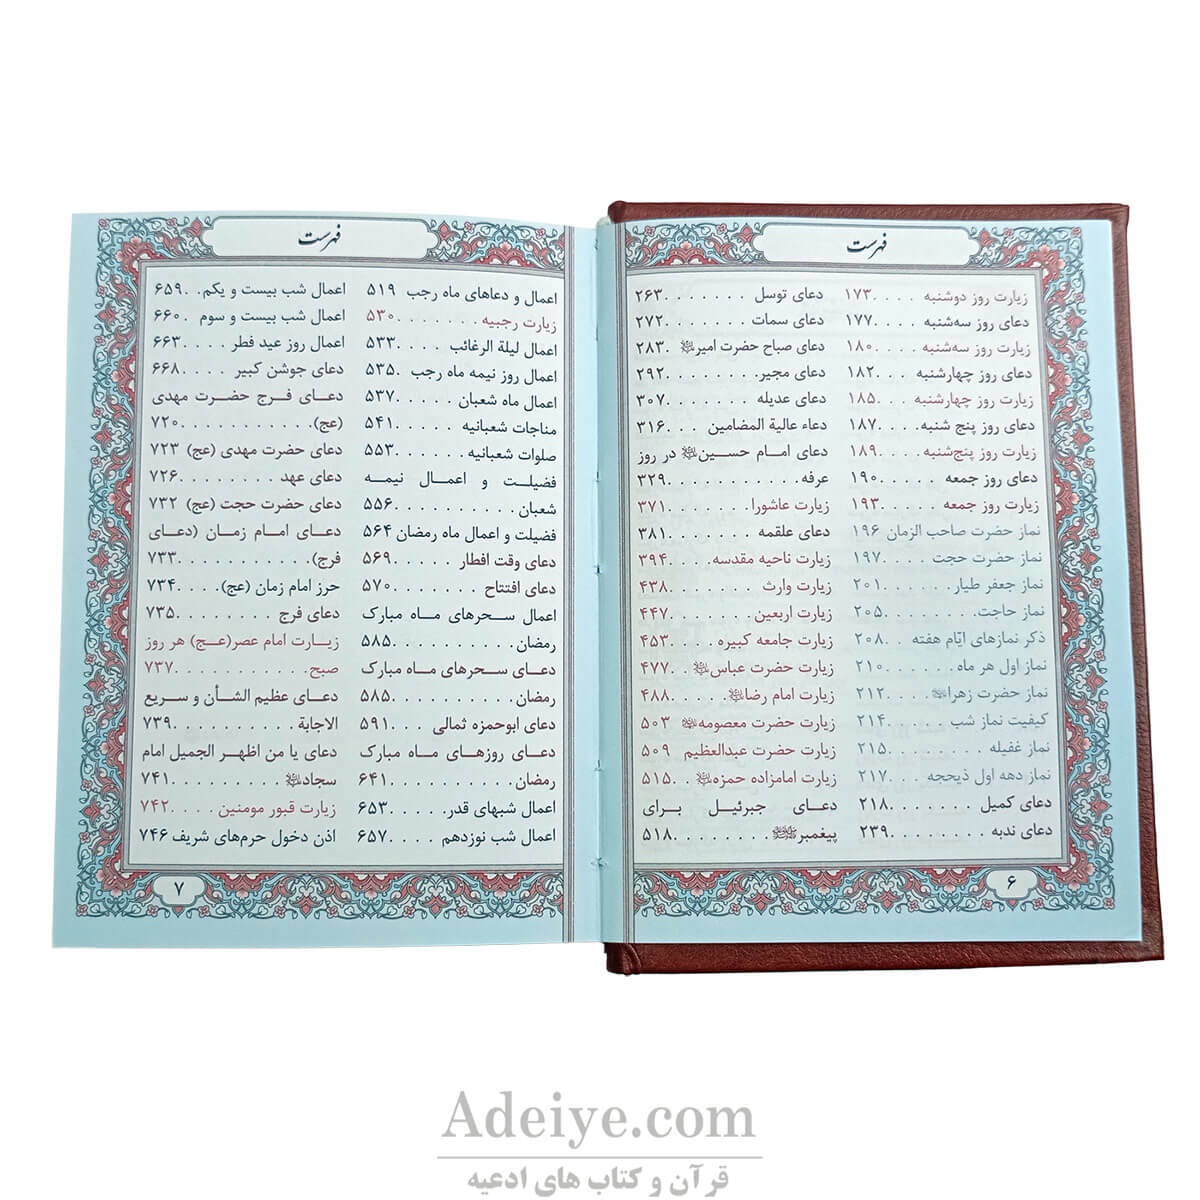 فهرست
زیارت روز دوشنبه . . . . ۱۷۳
دعای روز سه‌شنبه . . . . ۱۷۷
زیارت روز سه‌شنبه . . . . ۱۸۰
دعای روز چهارشنبه . . . ۱۸۲
زیارت روز چهارشنبه . . . ۱۸۵
دعای روز پنج شنبه . . . ۱۸۷
زیارت روز پنج‌شنبه . . . . ۱۸۹
دعای روز جمعه . . . . . ۱۹۰
زیارت روز جمعه . . . . . ۱۹۳
نماز حضرت صاحب الزمان ۱۹۶
نماز حضرت حجت . . . . ۱۹۷
نماز جعفر طیار . . . . . ۲۰۱
نماز حاجت. . . . . . . . ۲۰۵
ذکر نمازهای ایّام هفته . . ۲۰۸
نماز اول هر ماه . . . . . ۲۱۰
نماز حضرت زهرا . . . . ۲۱۲
کیفیت نماز شب . . . . . ۲۱۴
نماز غفیله . . . . . . . ۲۱۵
نماز دهه اول ذیحجه . . . ۲۱۷
دعای کمیل . . . . . . . ۲۱۸
دعای ندبه . . . . . . . . ۲۳۹
دعای توسل . . . . . . . ۲۶۳
دعای سمات . . . . . . . ۲۷۲
دعای صباح حضرت امیر . ۲۸۳
دعای مجیر. . . . . . . . ۲۹۲
دعای عدیله . . . . . . . ۳۰۷
دعاء عالیة المضامین . . . ۳۱۶
دعای امام حسین در روز
عرفه. . . . . . . . . . . ۳۲۹
زیارت عاشورا . . . . . . ۳۷۱
دعای علقمه . . . . . . . ۳۸۱
زیارت ناحیه مقدسه. . . . ۳۹۴
زیارت وارث . . . . . . . ۴۳۸
زیارت اربعین. . . . . . . ۴۴۷
زیارت جامعه کبیره . . . . ۴۵۳
زیارت حضرت عباس . . . ۴۷۷
زیارت امام رضا . . . . . ۴۸۸
زیارت حضرت معصومه ۵۰۳
زیارت حضرت عبدالعظیم ۵۰۹
زیارت امامزاده حمزه . . . ۵۱۵
دعای جبرئیل برای
پیغمبر . . . . . . . . . ۵۱۸
۶
فهرست
اعمال و دعاهای ماه رجب ۵۱۹
زیارت رجبیه . . . . . . . ۵۳۰
اعمال لیلة الرغائب . . . . ۵۳۳
اعمال روز نیمه ماه رجب . ۵۳۵
اعمال ماه شعبان . . . . . ۵۳۷
مناجات شعبانیه . . . . . ۵۴۱
صلوات شعبانیه . . . . . ۵۵۳
فضیلت و اعمال نیمه
شعبان . . . . . . . . . . ۵۵۶
فضیلت و اعمال ماه رمضان ۵۶۴
دعای وقت افطار . . . . . ۵۶۹
دعای افتتاح . . . . . . . ۵۷۰
اعمال سحرهای ماه مبارک
رمضان. . . . . . . . . . ۵۸۵
دعای سحرهای ماه مبارک
رمضان. . . . . . . . . . ۵۸۵
دعای ابوحمزه ثمالی . . . ۵۹۱
دعای روزهای ماه مبارک
رمضان. . . . . . . . . . ۶۴۱
اعمال شبهای قدر. . . . . ۶۵۳
اعمال شب نوزدهم . . . . ۶۵۷
اعمال شب بیست و یکم. . . ۶۵۹
اعمال شب بیست و سوم . ۶۶۰
اعمال روز عید فطر . . . . ۶۶۳
دعای جوشن کبیر . . . . ۶۶۸
دعای فرج حضرت مهدی
(عج). . . . . . . . . . . ۷۲۰
دعای حضرت مهدی (عج) ۷۲۳
دعای عهد . . . . . . . . ۷۲۶
دعای حضرت حجت (عج) ۷۳۲
دعای امام زمان (دعای
فرج). . . . . . . . . . . ۷۳۳
حرز امام زمان (عج). . . . ۷۳۴
دعای فرج . . . . . . . . ۷۳۵
زیارت امام عصر(عج) هر روز
صبح. . . . . . . . . . . ۷۳۷
دعای عظیم الشأن و سریع
الاجابة . . . . . . . . . . ۷۳۹
دعای یا من اظهر الجمیل امام
سجاد . . . . . . . . . . ۷۴۱
زیارت قبور مومنین . . . . ۷۴۲
اذن دخول حرم‌های شریف ۷۴۶
۷
Adeiye.com
قرآن و کتاب های ادعیه